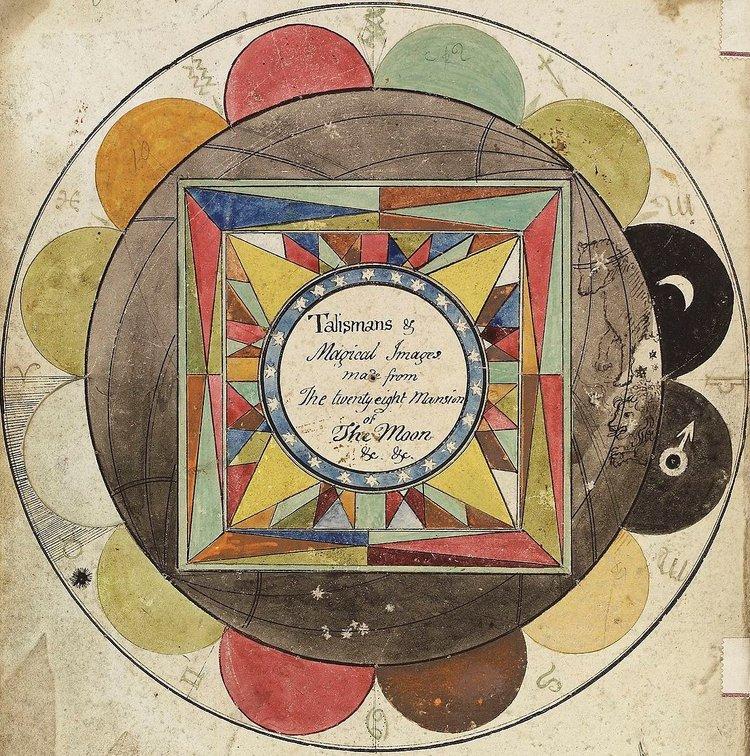 Talismans &
Magical Images
made from
The twenty eight Mansion
of
The Moon
&c. &c.